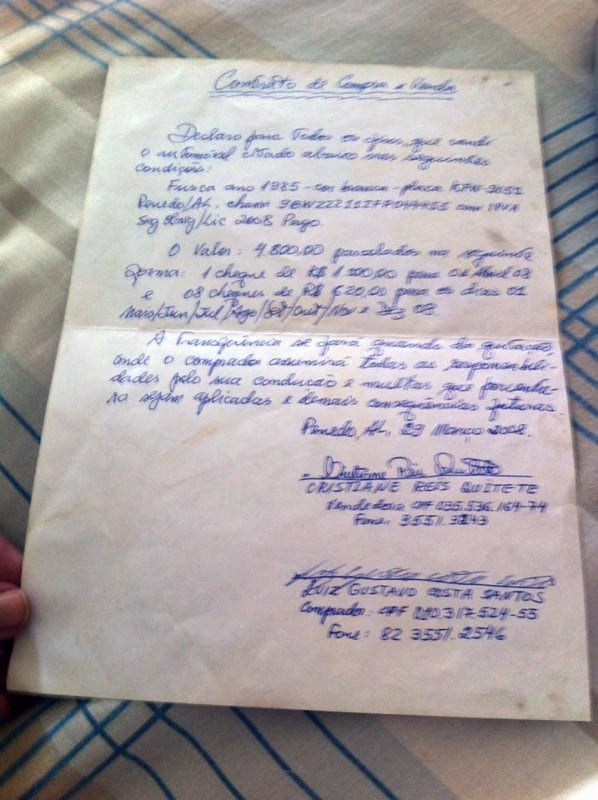 Contrato de Compra e Venda
Declaro para todos os fins, que vendi
o automóvel citado abaixo nas seguintes
condições:
Fusca ano 1985 - cor branca - placa
Penedo/AL, chassi com IPVA
Seg Obrig/Lic 2008 Pago.
O Valor: 4.800,00 parcelados na seguinte
forma: 1 cheque de R$ para Abril 08
e 08 cheques de R$ 620,00 para os dias 01
Maio/Jun/Jul/Ago/Set/Out/Nov e Dez 08.
A transferência se fará quando da quitação,
onde o comprador assumirá todas as responsabili-
dades pela sua condução e multas que porventu-
ra sejam aplicadas e demais consequências futuras.
Penedo, AL, 29 Março 2008.
CRISTIANE REIS QUITETE
Vendedora CPF 035.536.164-74
Fone: 3551.3243
LUIZ GUSTAVO COSTA SANTOS
Comprador: CPF 010.317.524-55
Fone: 82 3551.2546